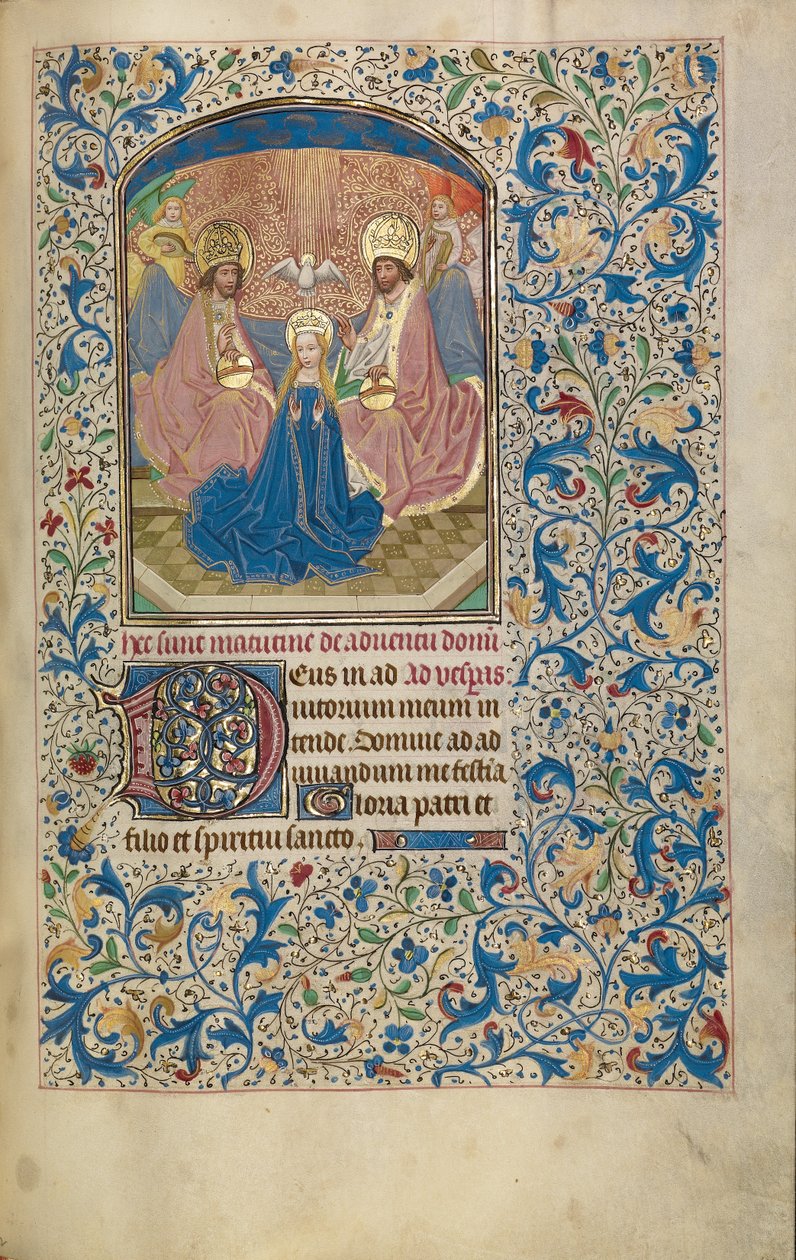 hec sunt matutine de aduentu domī
Deus in ad Ad vesp̄as:
iutorium meum in
tende. Domine ad ad
iuuandum me festīa
Gloria patri et
filio et spiritui sancto.